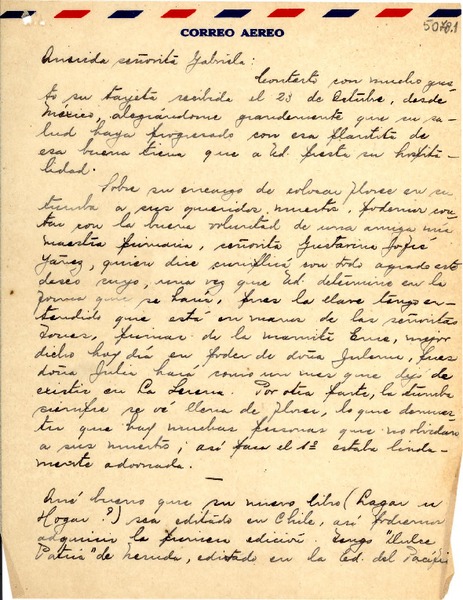 5078.1
CORREO AEREO
Querida señorita Gabriela:
Contesto con mucho gus-
to su tarjeta recibida el 23 de Octubre, desde
México, alegrándome grandemente que su sa-
lud haya progresado con esa plantita de
esa buena tierra que a Ud. presta su hospita-
lidad.
Sobre su encargo de colocar flores en su
tumba a sus queridos muertos, podemos con-
tar con la buena voluntad de una amiga mía
maestra primaria, señorita Gustavina Jofré
Yáñez, quien dice cumplirá con todo agrado este
deseo suyo, una vez que Ud. determine en la
forma que se hará, pues la llave tengo en-
tendido que está en manos de las señoritas
, primas de la mamita , mejor
dicho hoy día en poder de doña , pues
doña Julia hará como un mes que dejó de
existir en La Serena. Por otra parte, la tumba
siempre se vé llena de flores, lo que demues-
tra que hay muchas personas que no olvidan
a sus muertos; así para el 1º estaba linda-
mente adornada.
Qué bueno que su nuevo libro (Lagar u
Hogar?) sea editado en Chile, así podremos
adquirir la primera edición. Tengo "Dulce
Patria" de Neruda, editado en la Ed. del Pacífico